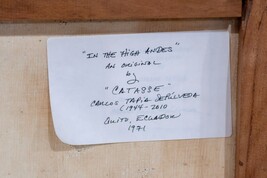 "IN THE HIGH ANDES"
AN ORIGINAL
by
"CATASSE"
CARLOS TAPIA SEPÚLVEDA
(1944-2010
QUITO, ECUADOR
1971